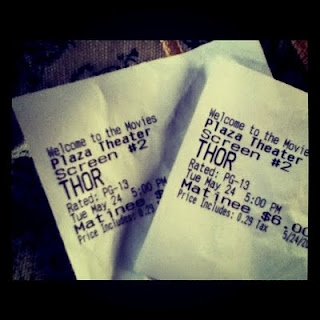 Welcome to the Movies
Plaza Theater
Screen #2
THOR
Rated: PG-13
Tue May 24 5:00 PM
Matinee $
Price Includes: 0.29 Tax
Welcome to the Movies
Plaza Theater
Screen #2
THOR
Rated: PG-13
Tue May 24 5:00 PM
Matinee $6.00
Price Includes: 0.29 Tax
5/24/20